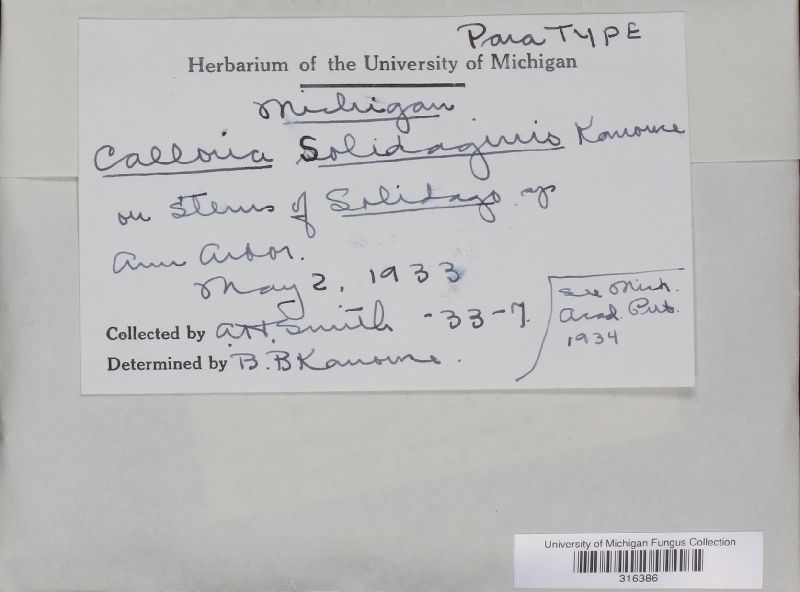 ParaTYPE
Herbarium of the University of Michigan
Michigan
Calloria Solidaginis Kanouse
on stems of Solidago sp
Ann Arbor.
May 2, 1933
Collected by A.H. Smith - 33-7.
Determined by B.B Kanouse.
see Mich.
Acad. Pub.
1934
University of Michigan Fungus Collection
316386